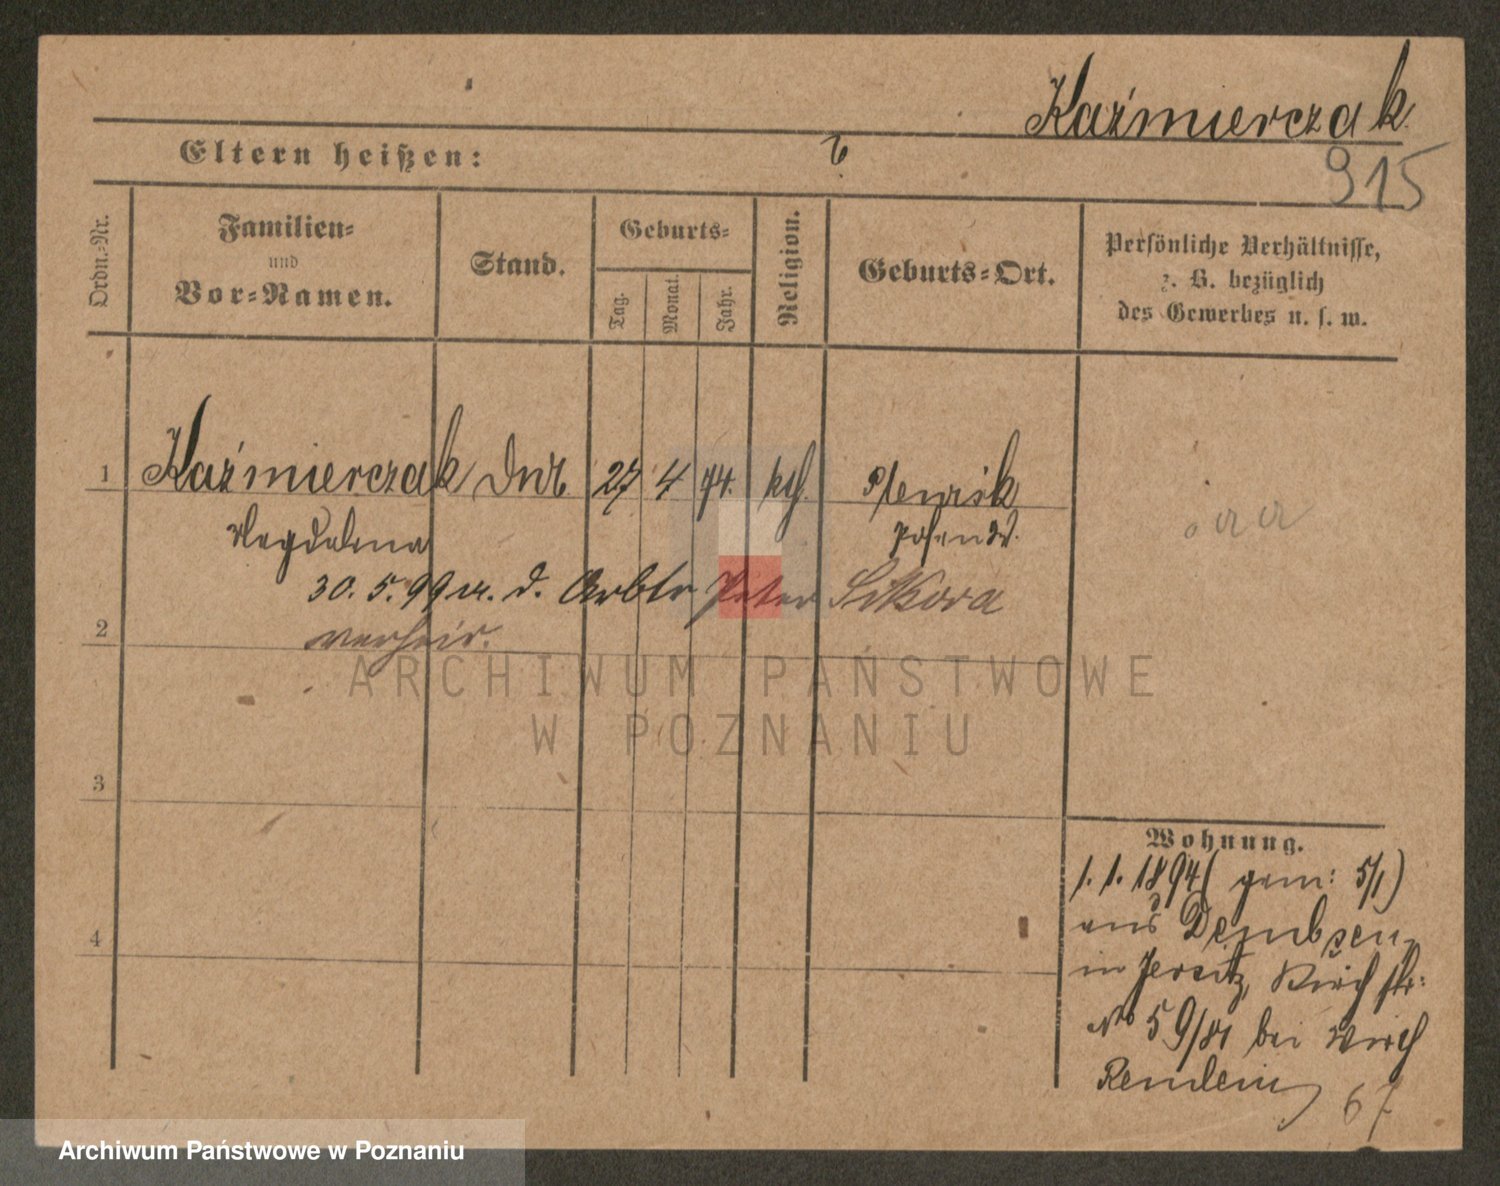 Kaźmierczak
Eltern heißen:
915
Ordn.-Nr.
Familien-
und
Vor-Namen.
Stand.
Geburts-
Tag.
Monat.
Jahr.
Religion.
Geburts-Ort.
Persönliche Verhältnisse,
z. B. bezüglich
des Gewerbes u. s. w.
1 Kaźmierczak 27 4 74. kth.
Magdalena Posen W.
30. 5. 99 m. d. Arbtr Peter Sikora
2 verheir.
ARCHIWUM PAŃSTWOWE
W POZNANIU
3
Wohnung.
1. 1. 1894 ( gem: 5/1)
aus Dembsen
4
in Jersitz, Kirchstr:
No 59/81 bei Wirth
67
Archiwum Państwowe w Poznaniu